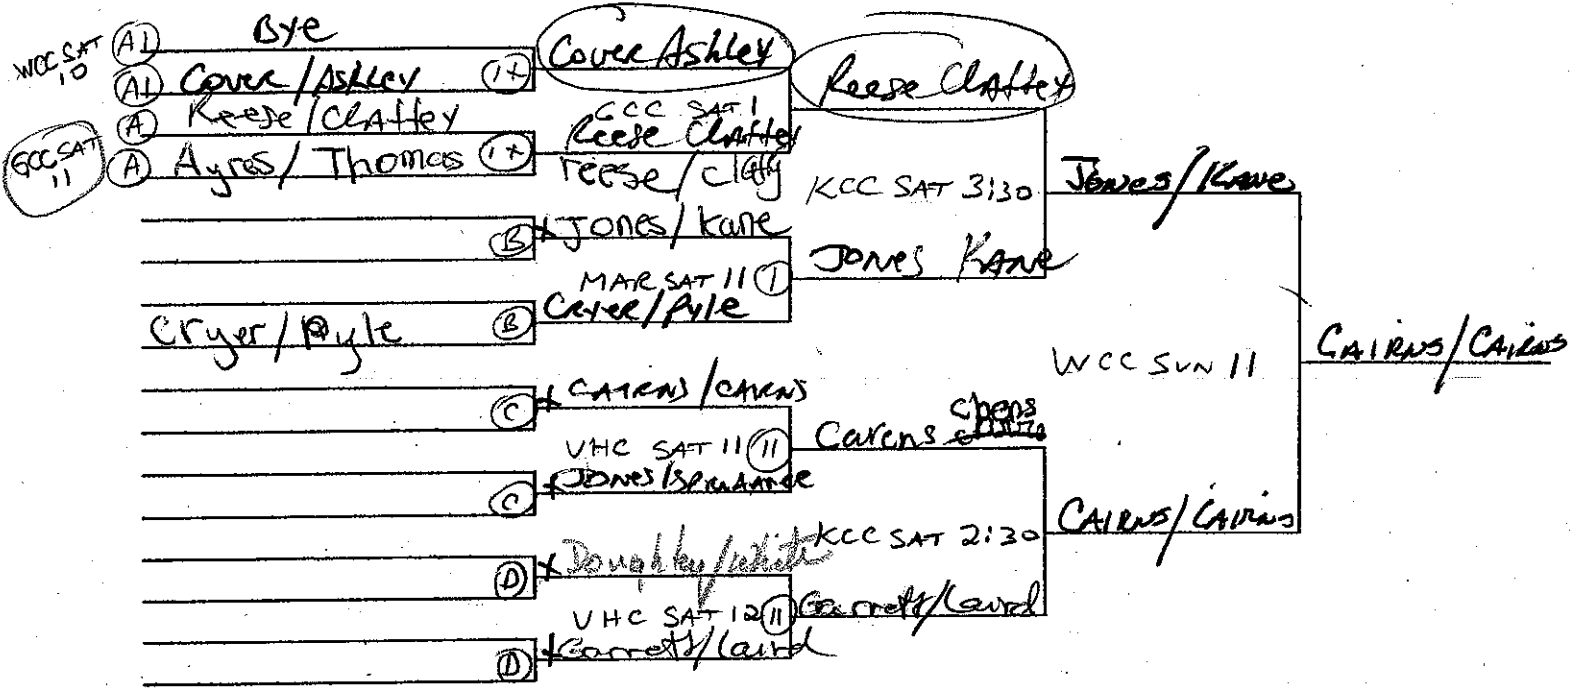 WCC SAT
10
A1
Bye
A1
Cover/Ashley
1x
GCC SAT
11
A
Reese/Claffey
A
Ayres/Thomas
1x
B
B
Cryer/Pyle
C
C
D
D
Cover Ashley
GCC SAT 1
Reese Claffey
reese/Claffy
x Jones/Kane
MAR SAT 11 1
Cryer/Pyle
x CAIRNS/CAIRNS
VHC SAT 11 11
x JONES/SPRUANCE
x Doughty/White
VHC SAT 12 11
x Garrett/Laird
Reese Claffey
KCC SAT 3:30
JONES KANE
Carens
KCC SAT 2:30
Garrett/Laird
JONES/KANE
WCC SUN 11
CAIRNS/CAIRNS
CAIRNS/CAIRNS